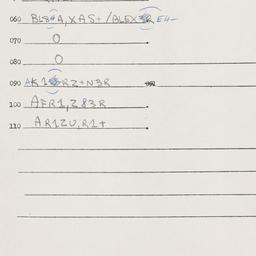 060 BLS+A,XAS+/ALEXZR EH-
070 O
080 O
090 AK1 RZ+N3R
100 AFR1,Z83R
110 AR1ZU,R1+